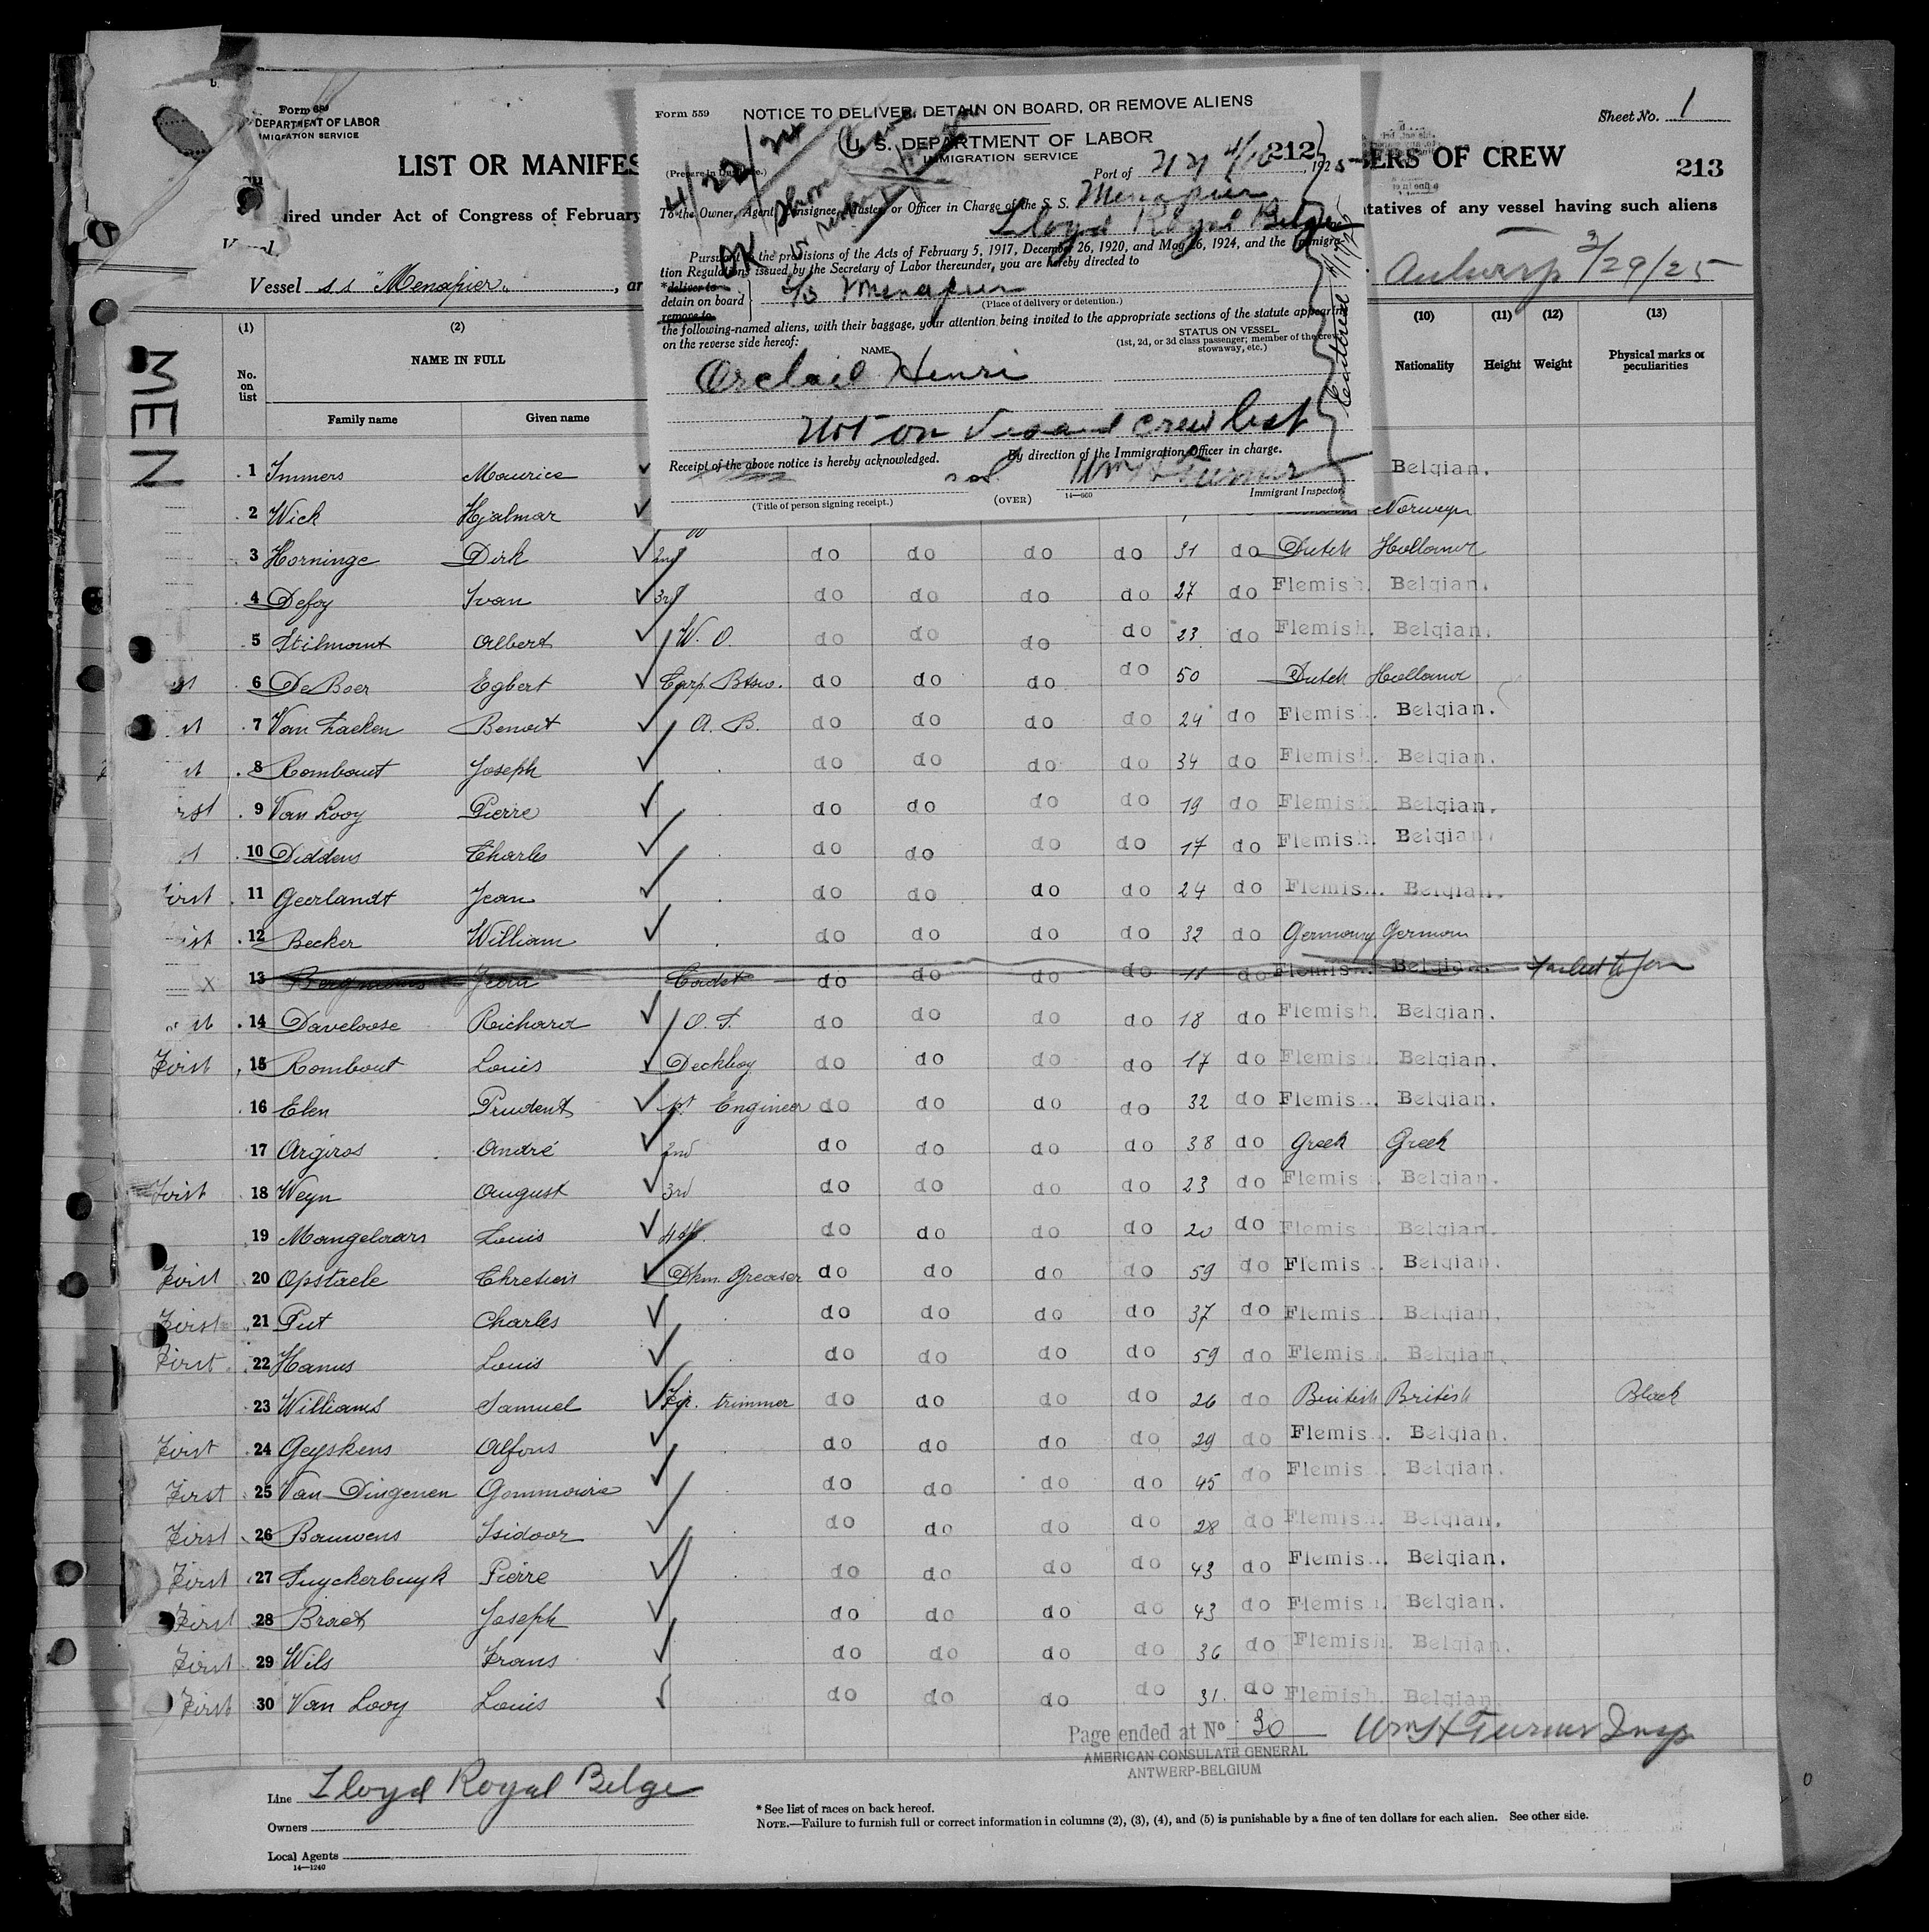 Form 689
DEPARTMENT OF LABOR
IMMIGRATION SERVICE
Sheet No. 1
LIST OR MANIFES
BERS OF CREW
213
ired under Act of Congress of February
tatives of any vessel having such aliens
Vessel
Vessel s s "Menapier", ar
Antwerp 3/29/25
MEN
Form 559 NOTICE TO DELIVER, DETAIN ON BOARD, OR REMOVE ALIENS
U. S. DEPARTMENT OF LABOR
IMMIGRATION SERVICE
212
(Prepare in Duplicate.)
Port of NY 4/10, 1925
4/22/24
OK
To the Owner, Agent, Consignee, Master, or Officer in Charge of the S. S. Menapier
Lloyd Royal Belge
Pursuant to the provisions of the Acts of February 5, 1917, December 26, 1920, and May 26, 1924, and the Immigra-
tion Regulations issued by the Secretary of Labor thereunder, you are hereby directed to
*deliver to
detain on board
remove to
S/S Menapier
(Place of delivery or detention.)
the following-named aliens, with their baggage, your attention being invited to the appropriate sections of the statute appearing
on the reverse side hereof:
NAME
STATUS ON VESSEL
(1st, 2d, or 3d class passenger; member of the crew,
stowaway, etc.)
Orclail Henri
Not on Visaed crew list
Receipt of the above notice is hereby acknowledged.
By direction of the Immigration Officer in charge.
Wm H Turner
(Title of person signing receipt.)
(OVER)
14—660
Immigrant Inspector.
(1) (2) (10) (11) (12) (13)
No. on list
NAME IN FULL
Family name Given name
Nationality Height Weight Physical marks or peculiarities
1 Immers Maurice Belgian.
2 Wick Hjalmar Norweyn
3 Horninge Dirk 2nd do do do do 31 do Dutch Holland
4 Defoy Ivan 3rd do do do do 27 do Flemish. Belgian.
5 Stilmant Albert W. O. do do do do 23 do Flemish. Belgian.
6 De Boer Egbert Carp. Btsw. do do do do 50 Dutch Holland
7 Van Laeken Benoit A. B. do do do do 24 do Flemish. Belgian.
8 Rombout Joseph do do do do 34 do Flemish. Belgian.
rst 9 Van Looy Pierre do do do do 19 do Flemish. Belgian.
10 Diddens Charles do do do do 17 do Flemish. Belgian.
irst 11 Geerlandt Jean do do do do 24 do Flemish. Belgian.
12 Becker William do do do do 32 do Germany German
x 13 Bergmans Jean Cadet do do do do 11 do Flemish. Belgian.
14 Daveloose Richard O. S. do do do do 18 do Flemish. Belgian.
First 15 Rombout Louis Deckboy do do do do 17 do Flemish. Belgian.
16 Elen Prudent 1st Engineer do do do do 32 do Flemish. Belgian.
17 Argiros André 2nd do do do do 38 do Greek Greek
First 18 Weyn August 3rd do do do do 23 do Flemish. Belgian.
19 Mangelaars Louis 4th. do do do do 20 do Flemish. Belgian.
First 20 Opstaele Chretien Dkm. Greaser do do do do 59 do Flemish. Belgian.
First 21 Put Charles do do do do 37 do Flemish. Belgian.
First 22 Hanus Louis do do do do 59 do Flemish. Belgian.
23 Williams Samuel Fir. trimmer do do do do 26 do British British Black
First 24 Geyskens Alfons do do do do 29 do Flemish. Belgian.
First 25 Van Dingenen Gommaire do do do do 45 do Flemish. Belgian.
First 26 Bauwens Isidoor do do do do 28 do Flemish. Belgian.
First 27 Suyckerbuyk Pierre do do do do 43 do Flemish. Belgian.
First 28 Braet Joseph do do do do 43 do Flemish. Belgian.
First 29 Wils Frans do do do do 36 do Flemish. Belgian.
First 30 Van Looy Louis do do do do 31. do Flemish. Belgian.
Page ended at No 30 Wm H Turner Insp
AMERICAN CONSULATE GENERAL
ANTWERP-BELGIUM
Line Lloyd Royal Belge
Owners
Local Agents
14—1240
* See list of races on back hereof.
NOTE.—Failure to furnish full or correct information in columns (2), (3), (4), and (5) is punishable by a fine of ten dollars for each alien. See other side.